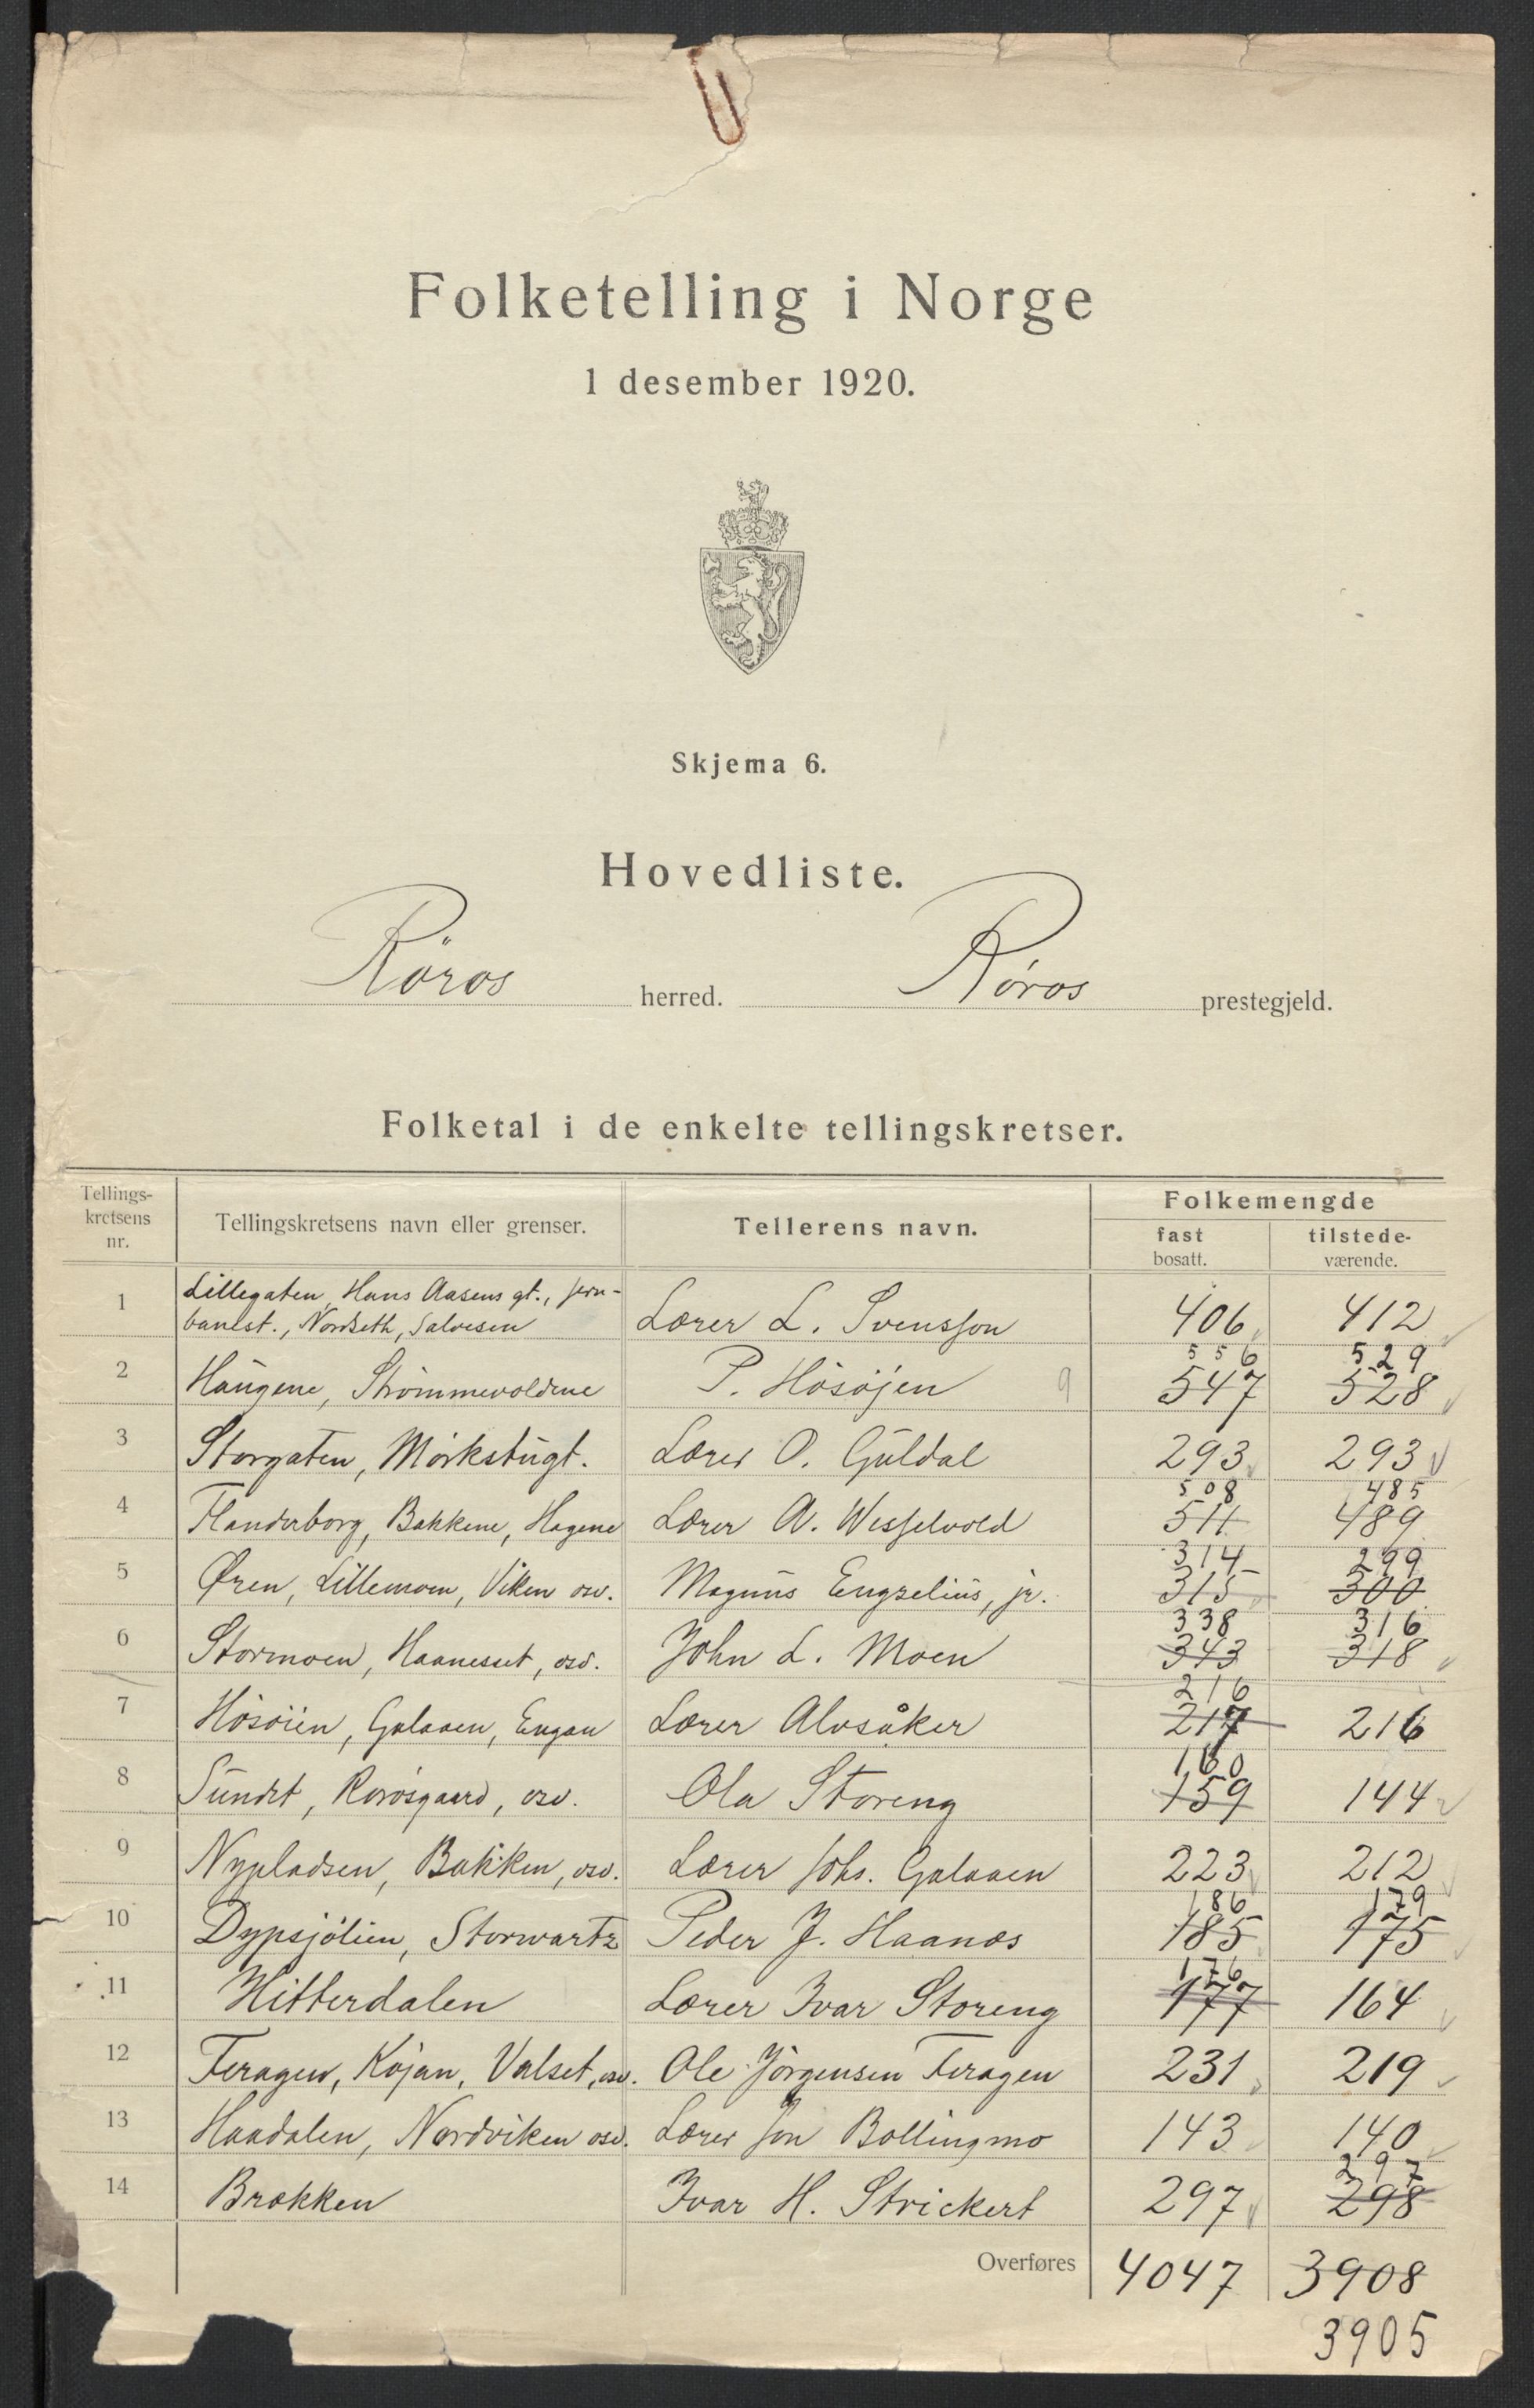 Folketelling i Norge
1 desember 1920.
Skjema 6.
Hovedliste.
Röros herred. Røros prestegjeld.
Folketal i de enkelte tellingskretser.
Tellings-
kretsens
nr.
Tellingskretsens navn eller grenser.
Tellerens navn.
Folkemengde
fast
bosatt.
tilstede-
værende.
1 Lillegaten, Hans Aasens gt., jern-
banest., Nordseth, Salvesen Lærer L. Svensson 406 412
556 529
2 Haugene, Strømmevoldene P. Hösöjen 9 547 528
3 Storgaten, Mörkstugt. Lærer O. Guldal 293 293
508 485
4 Flanderborg, Bakkene, Hagene Lærer A. Wesselvold 511 489
314 299
5 Øren, Lillemoen, Viken osv. Magnus Engzelius, jr. 315 300
338 316
6 Stormoen, Haanesset, osv. John L. Moen 343 318
216
7 Hösöien, Galaaen, Engan Lærer Alvsåker 217 216
160
8 Sundt, Rorosgaard, osv. Ola Storeng 159 144
9 Nypladsen, Bakken, osv. Lærer Johs. Galaaen 223 212
186 179
10 Dypsjölien, Storwartz Peder J. Haanæs 185 175
176
11 Hitterdalen Lærer Ivar Storeng 177 164
12 Feragen, Kojan, Valset, osv. Ole Jörgensen Feragen 231 219
13 Haadalen, Nordviken osv. Lærer Jon Bollingmo 143 140
297
14 Brækken Ivar H. Strickert 297 298
Overføres 4047 3908
3905